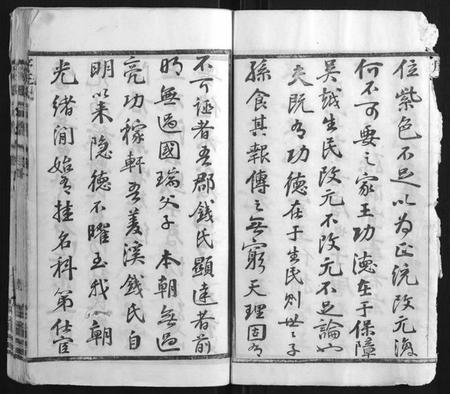 位紫色不足以为正统改元海
何不可要之家王功德在于保障
吴越生民改元不改元不足論也
夫既有功德在于生民则世世子
孫食其報傳之無窮天理固有
不可誣者吾郡錢氏顯達者前
明無過國瑞父子 本朝無過
亮功稼軒吾菱溪錢氏自
明以来隐德不曜至我 朝
光緒間始有挂名科第仕宦